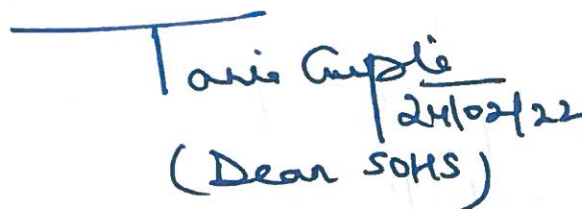 Tanie Gupte
24/02/22
(Dean SOHS)